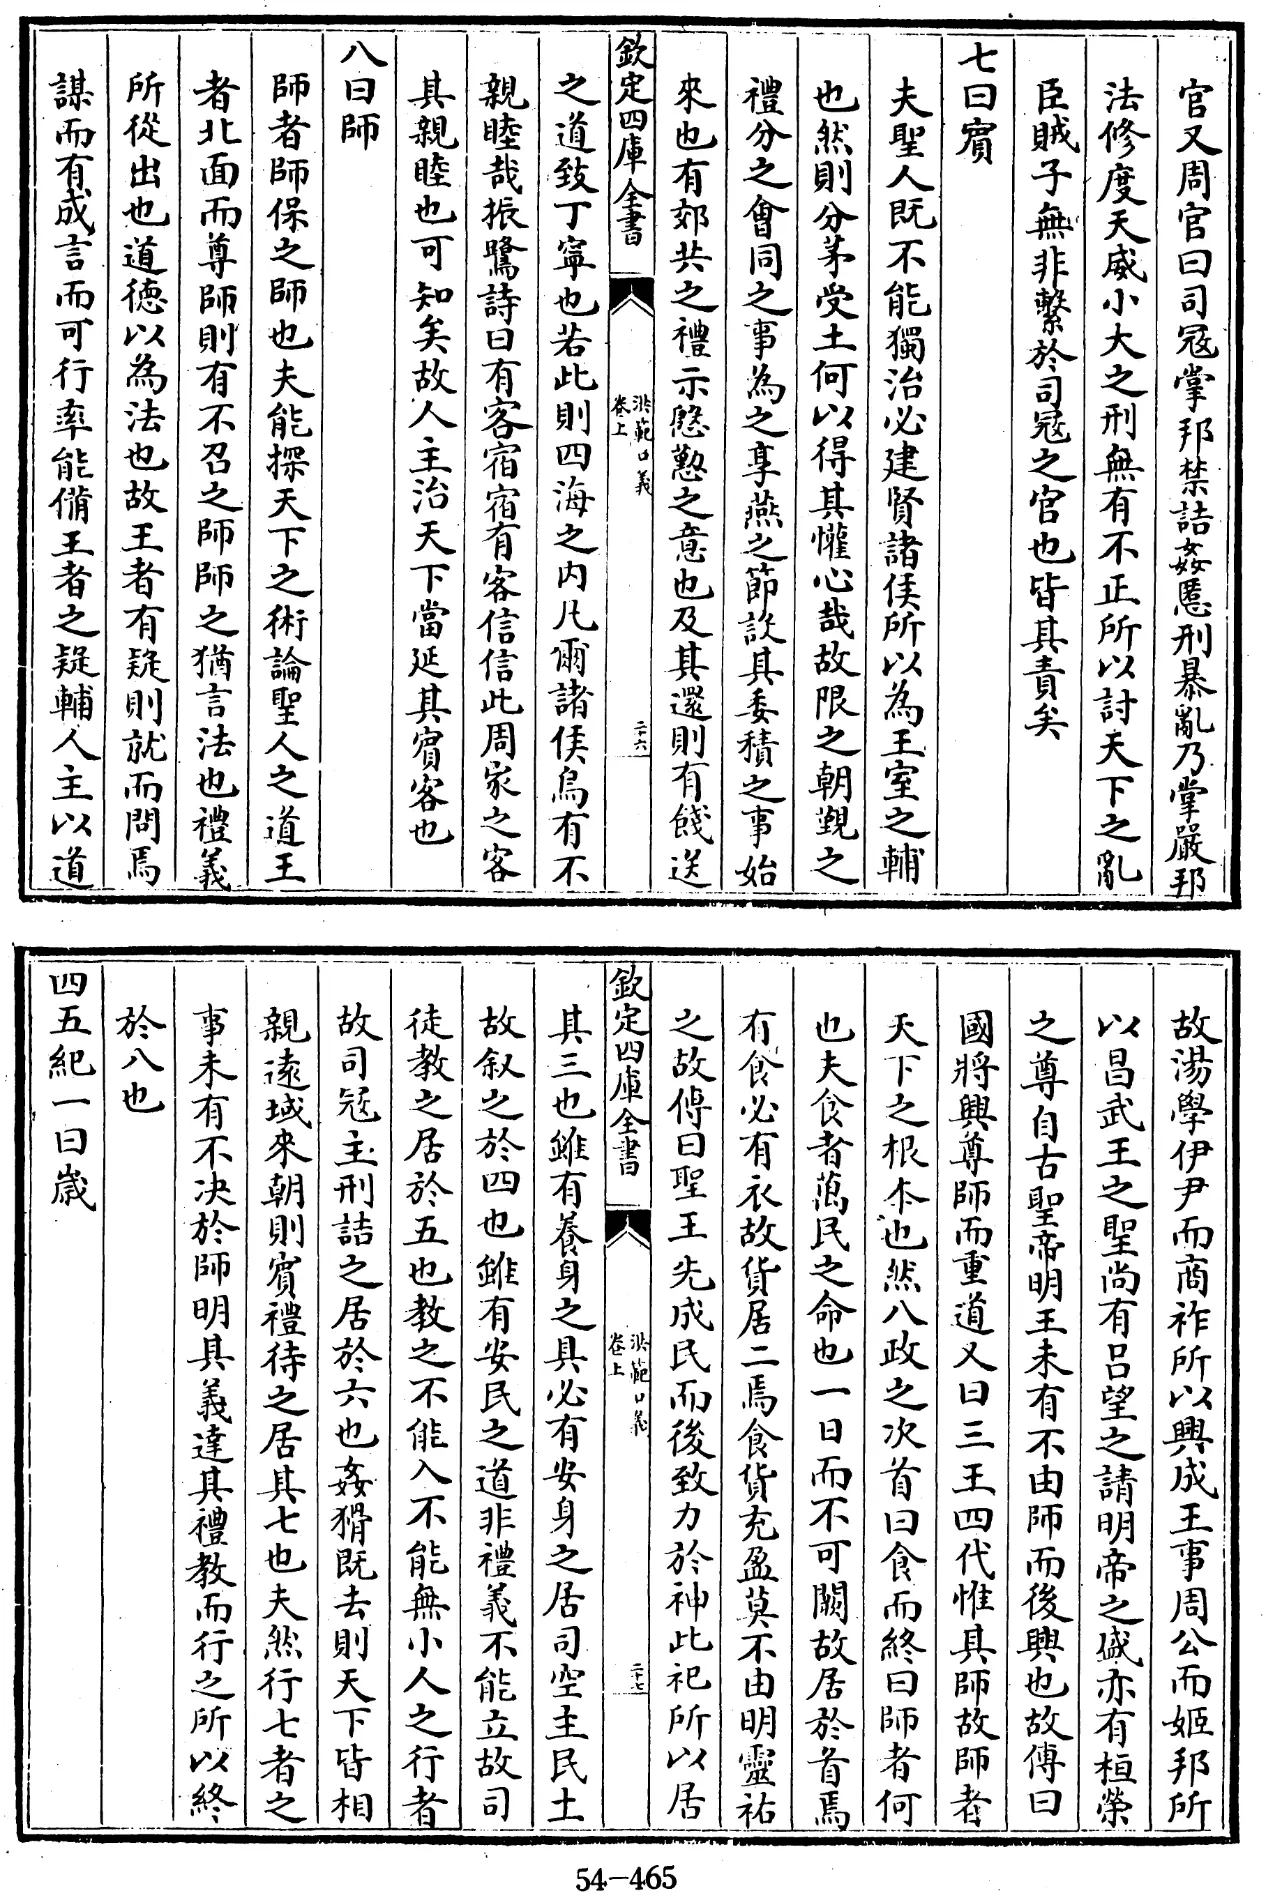 官又周官曰司冦掌邦禁詰姦慝刑暴亂乃掌嚴邦
法修度天威小大之刑無有不正所以討天下之亂
臣賊子無非繫於司冦之官也皆其責矣
七曰賓
夫聖人既不能獨治必建賢諸侯所以為王室之輔
也然則分茅受土何以得其懽心哉故限之朝覲之
禮分之會同之事為之享燕之節設其委積之事始
來也有郊共之禮示慇懃之意也及其還則有餞送
欽定四庫全書
洪範口義
卷上
二十六
之道致丁寧也若此則四海之内凡爾諸侯烏有不
親睦哉振鷺詩曰有客宿宿有客信信此周家之客
其親睦也可知矣故人主治天下當延其賓客也
八曰師
師者師保之師也夫能探天下之術論聖人之道王
者北面而尊師則有不召之師師之猶言法也禮義
所從出也道德以為法也故王者有疑則就而問焉
謀而有成言而可行率能備王者之疑輔人主以道
故湯學伊尹而商祚所以興成王事周公而姬邦所
以昌武王之聖尚有吕望之請明帝之盛亦有桓榮
之尊自古聖帝明王未有不由師而後興也故傳曰
國將興尊師而重道又曰三王四代惟其師故師者
天下之根本也然八政之次首曰食而終曰師者何
也夫食者萬民之命也一日而不可闕故居於首焉
有食必有衣故貨居二焉食貨充盈莫不由明靈祐
之故傳曰聖王先成民而後致力於神此祀所以居
欽定四庫全書
洪範口義
卷上
二十七
其三也雖有養身之具必有安身之居司空主民土
故叙之於四也雖有安民之道非禮義不能立故司
徒教之居於五也教之不能入不能無小人之行者
故司冦主刑詰之居於六也姦猾既去則天下皆相
親逺域來朝則賓禮待之居其七也夫然行七者之
事未有不决於師明其義達其禮教而行之所以終
於八也
四五紀一曰歳
54-465